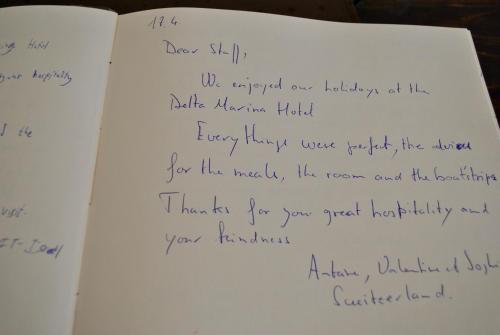 Hotel
your hospitality
the
visit.
17.4
Dear Staff,
We enjoyed our holidays at the
Delta Marina Hotel
Everythings were perfect, the
for the meals, the room and the boatstrips
Thanks for your great hospitality and
your kindness
Antoine, Valentine et
Switzerland.